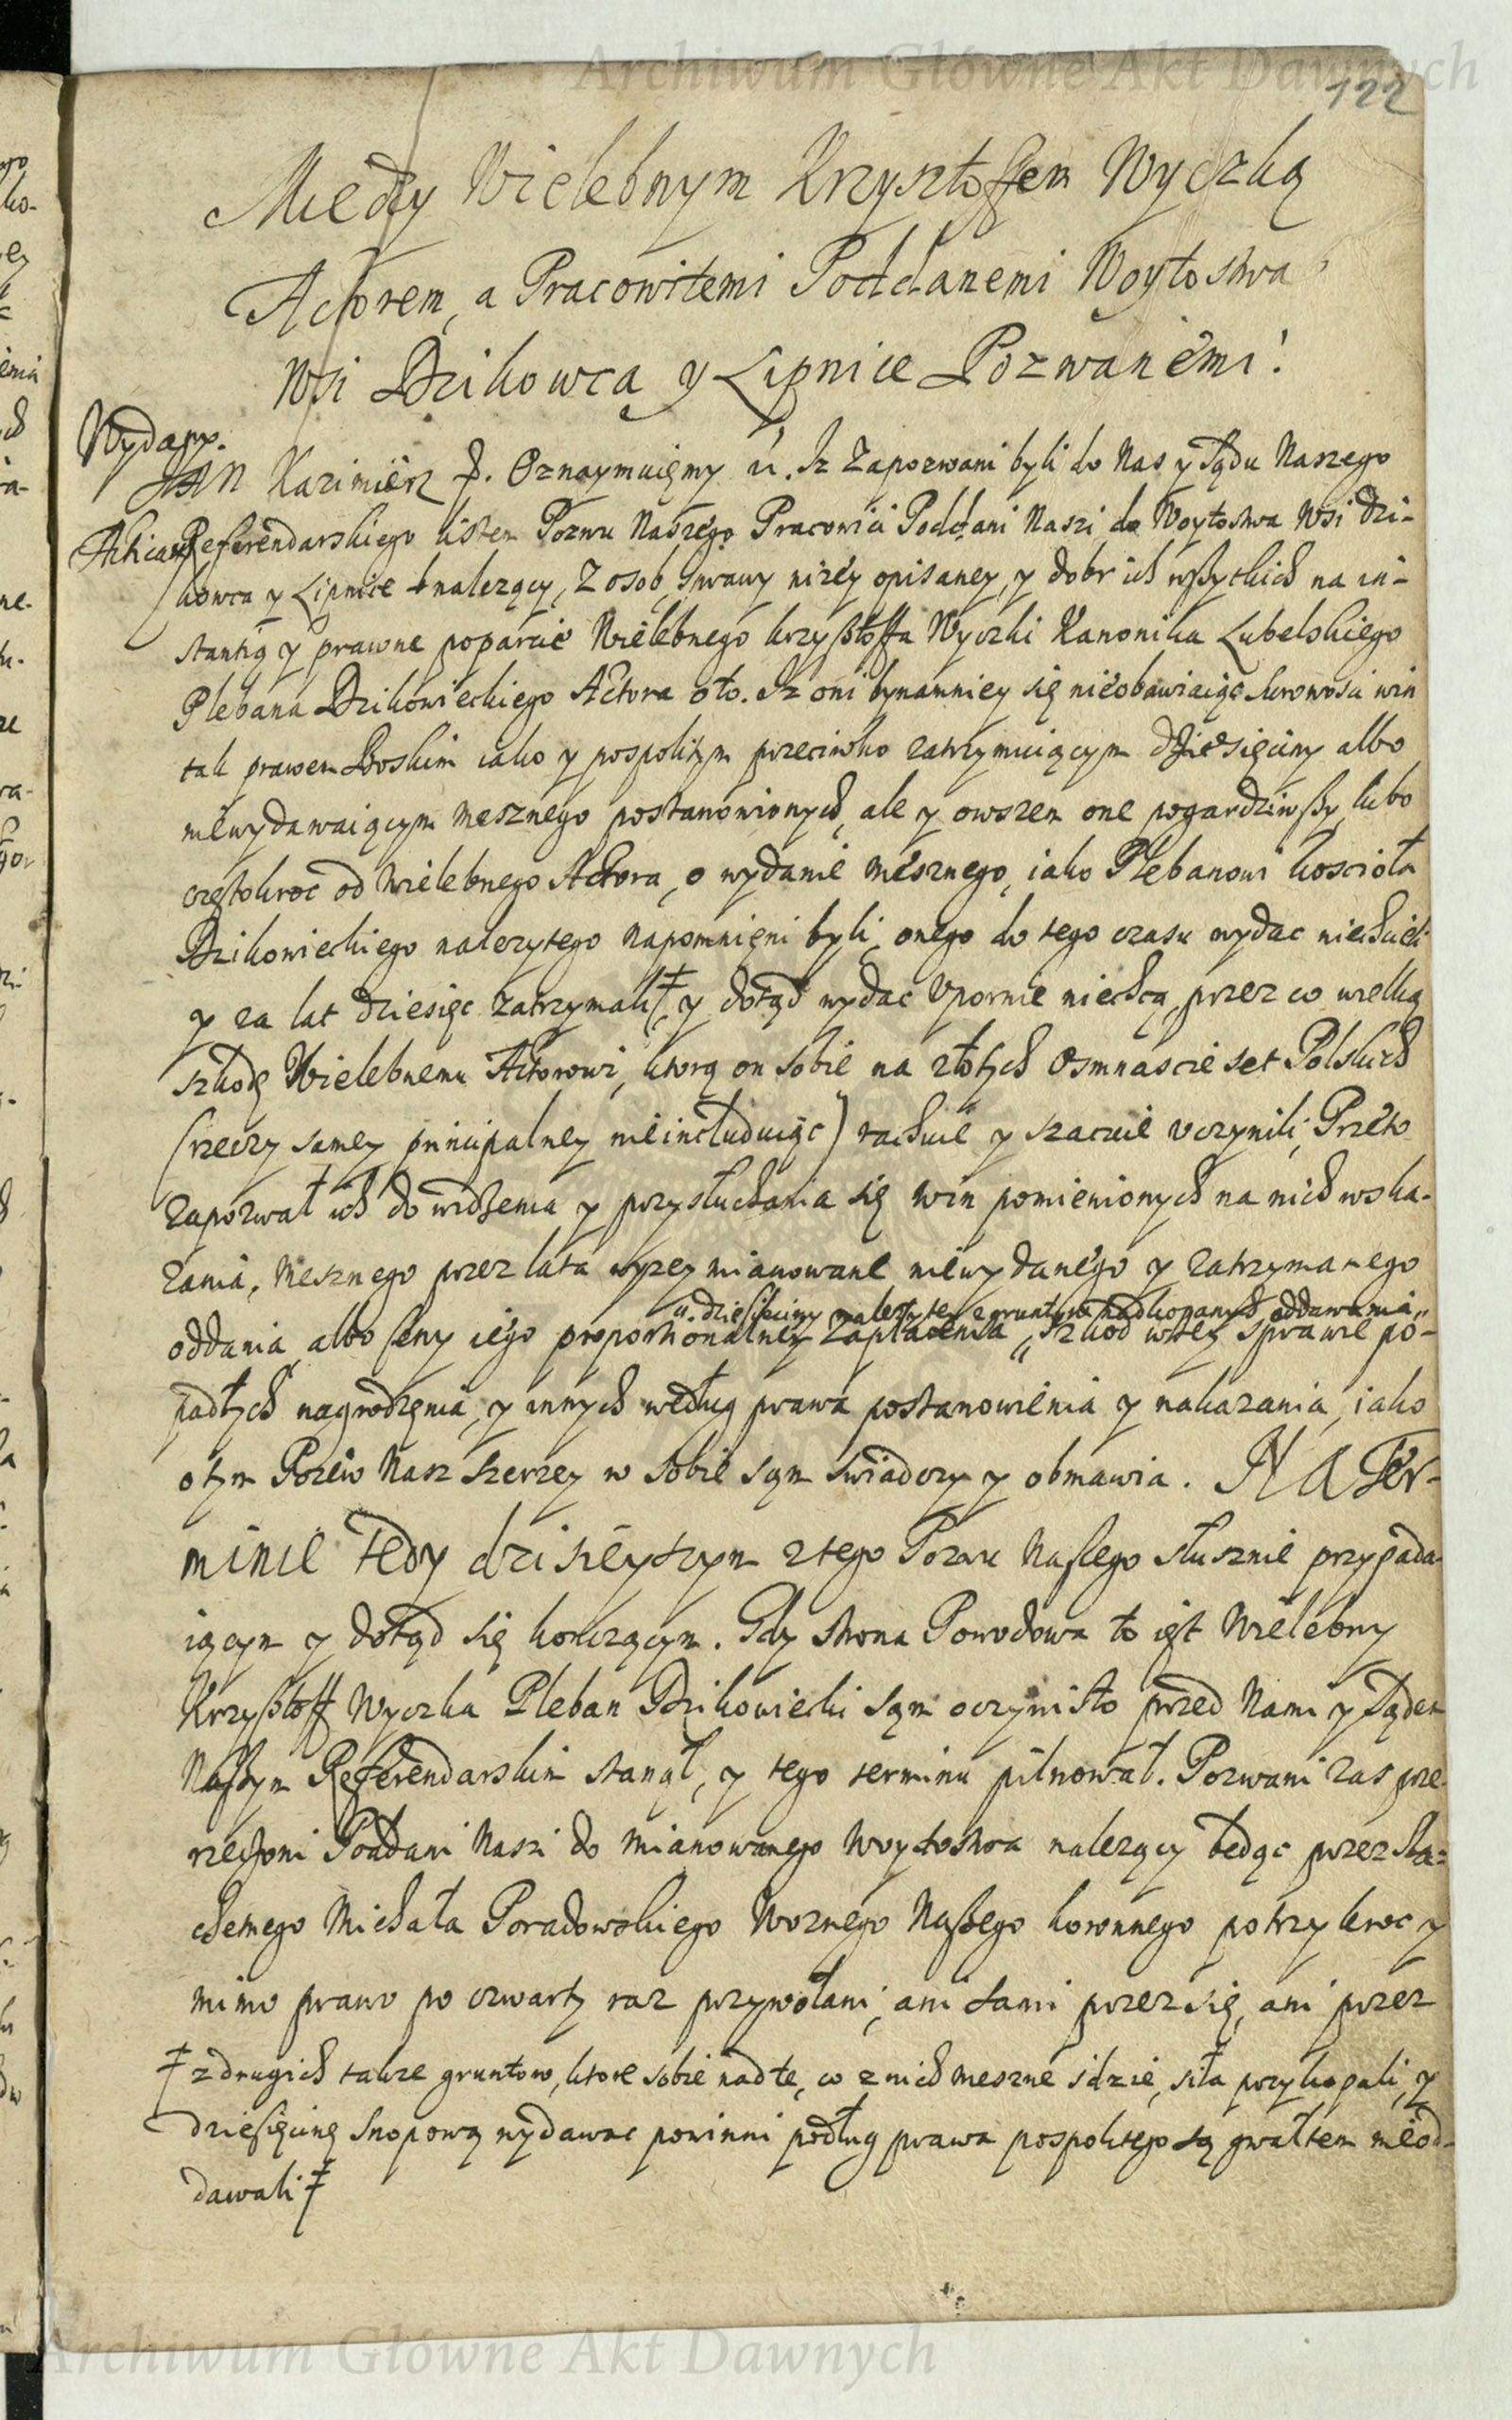 Archiwum Główne Akt Dawnych
122
Miedzy Wielebnym Krzysztoffem Wyczką
Actorem, a Pracowitemi Poddanemi Woytostwa
Wsi Dzikowca y Lipnice Pozwanemi.
Wydany.
JAN Kazimierz &. Oznaymuięmy iż. Iz Zapozwani byli do Nas y Sądu Naszego
Acticat
Referendarskiego listem Pozwu Naszego Pracowici Poddani Naszi do Woytostwa Wsi Dzi-
kowca y Lipnice nalezący, Z osob, sprawy nizey opisaney, y dobr ich wszytkich na in-
stantią y prawne poparcie Wielebnego Krzysztoffa Wyczki Kanonika Lubelskiego
Plebana Dzikowieckiego Actora oto. Iz oni bynamniey się nieobawiaiąc surowosci win
tak prawem Boskim iako y pospolitym przeciwko zatrzymuiącym dziesięciny albo
niewydawaiącym mesznego postanowionych, ale y owszem one pogardziwszy, lubo
częstokroc od Wielebnego Actora, o wydanie mesznego, iako Plebanowi koscioła
Dzikowieckiego nalezytego napomnięni byli, onego do tego czasu wydac niechcieli
y za lat dziesięc zatrzymali ‡, y dotąd wydac Vpornie niechcą, przez co wielką
szkodę Wielebnemu Actorowi, ktorą on sobie na złotych Osmnascie set Polskich
(rzeczy samey principalney nieincluduiąc) rachuie y szacuie vczynili, Przeto
zapozwał ich do widzenia y przysłuchania się win pomienionych na nich wska-
zania, mesznego przez lata wyzey mianowane niewydanego y zatrzymanego
u. dziesięciny nalezytey z gruntow nadkopanych oddawania,,
oddania, albo ceny iego proportionalney zapłacenia ,, szkod wtey sprawie po-
padłych nagrodzęnia, y innych według prawa postanowienia y nakazania, iako
o tym Pozew Nasz szerzey w sobie sąm swiadczy y obmawia. NA Ter-
minie tedy dzisieyszym z tego Pozwu Naszego słusznie przypada-
iącym y dotąd się konczącym. Gdy strona Powodowa to iest Wielebny
Krzysztoff Wyczka Pleban Dzikowiecki sąm oczywisto przed Nami y Sądem
Naszym Referendarskim stanął, y tego terminu pilnował. Pozwani zas prze-
rzeczoni Poddani Naszi do mianowanego Woytostwa nalezący będąc przez Sła-
chetnego Michała Poradowskiego Woznego Naszego koronnego potrzykroc y
mimo prawo po czwarty raz przywołani, ani sami przez się, ani przez
‡ z drugich takze gruntow, ktore sobie nad te, co z nich meszne idzie, siła przykopali, y
dziesięcinę snopową wydawac powinni podług prawa pospolitego tą gwałtem nieod-
dawali ‡
Archiwum Główne Akt Dawnych